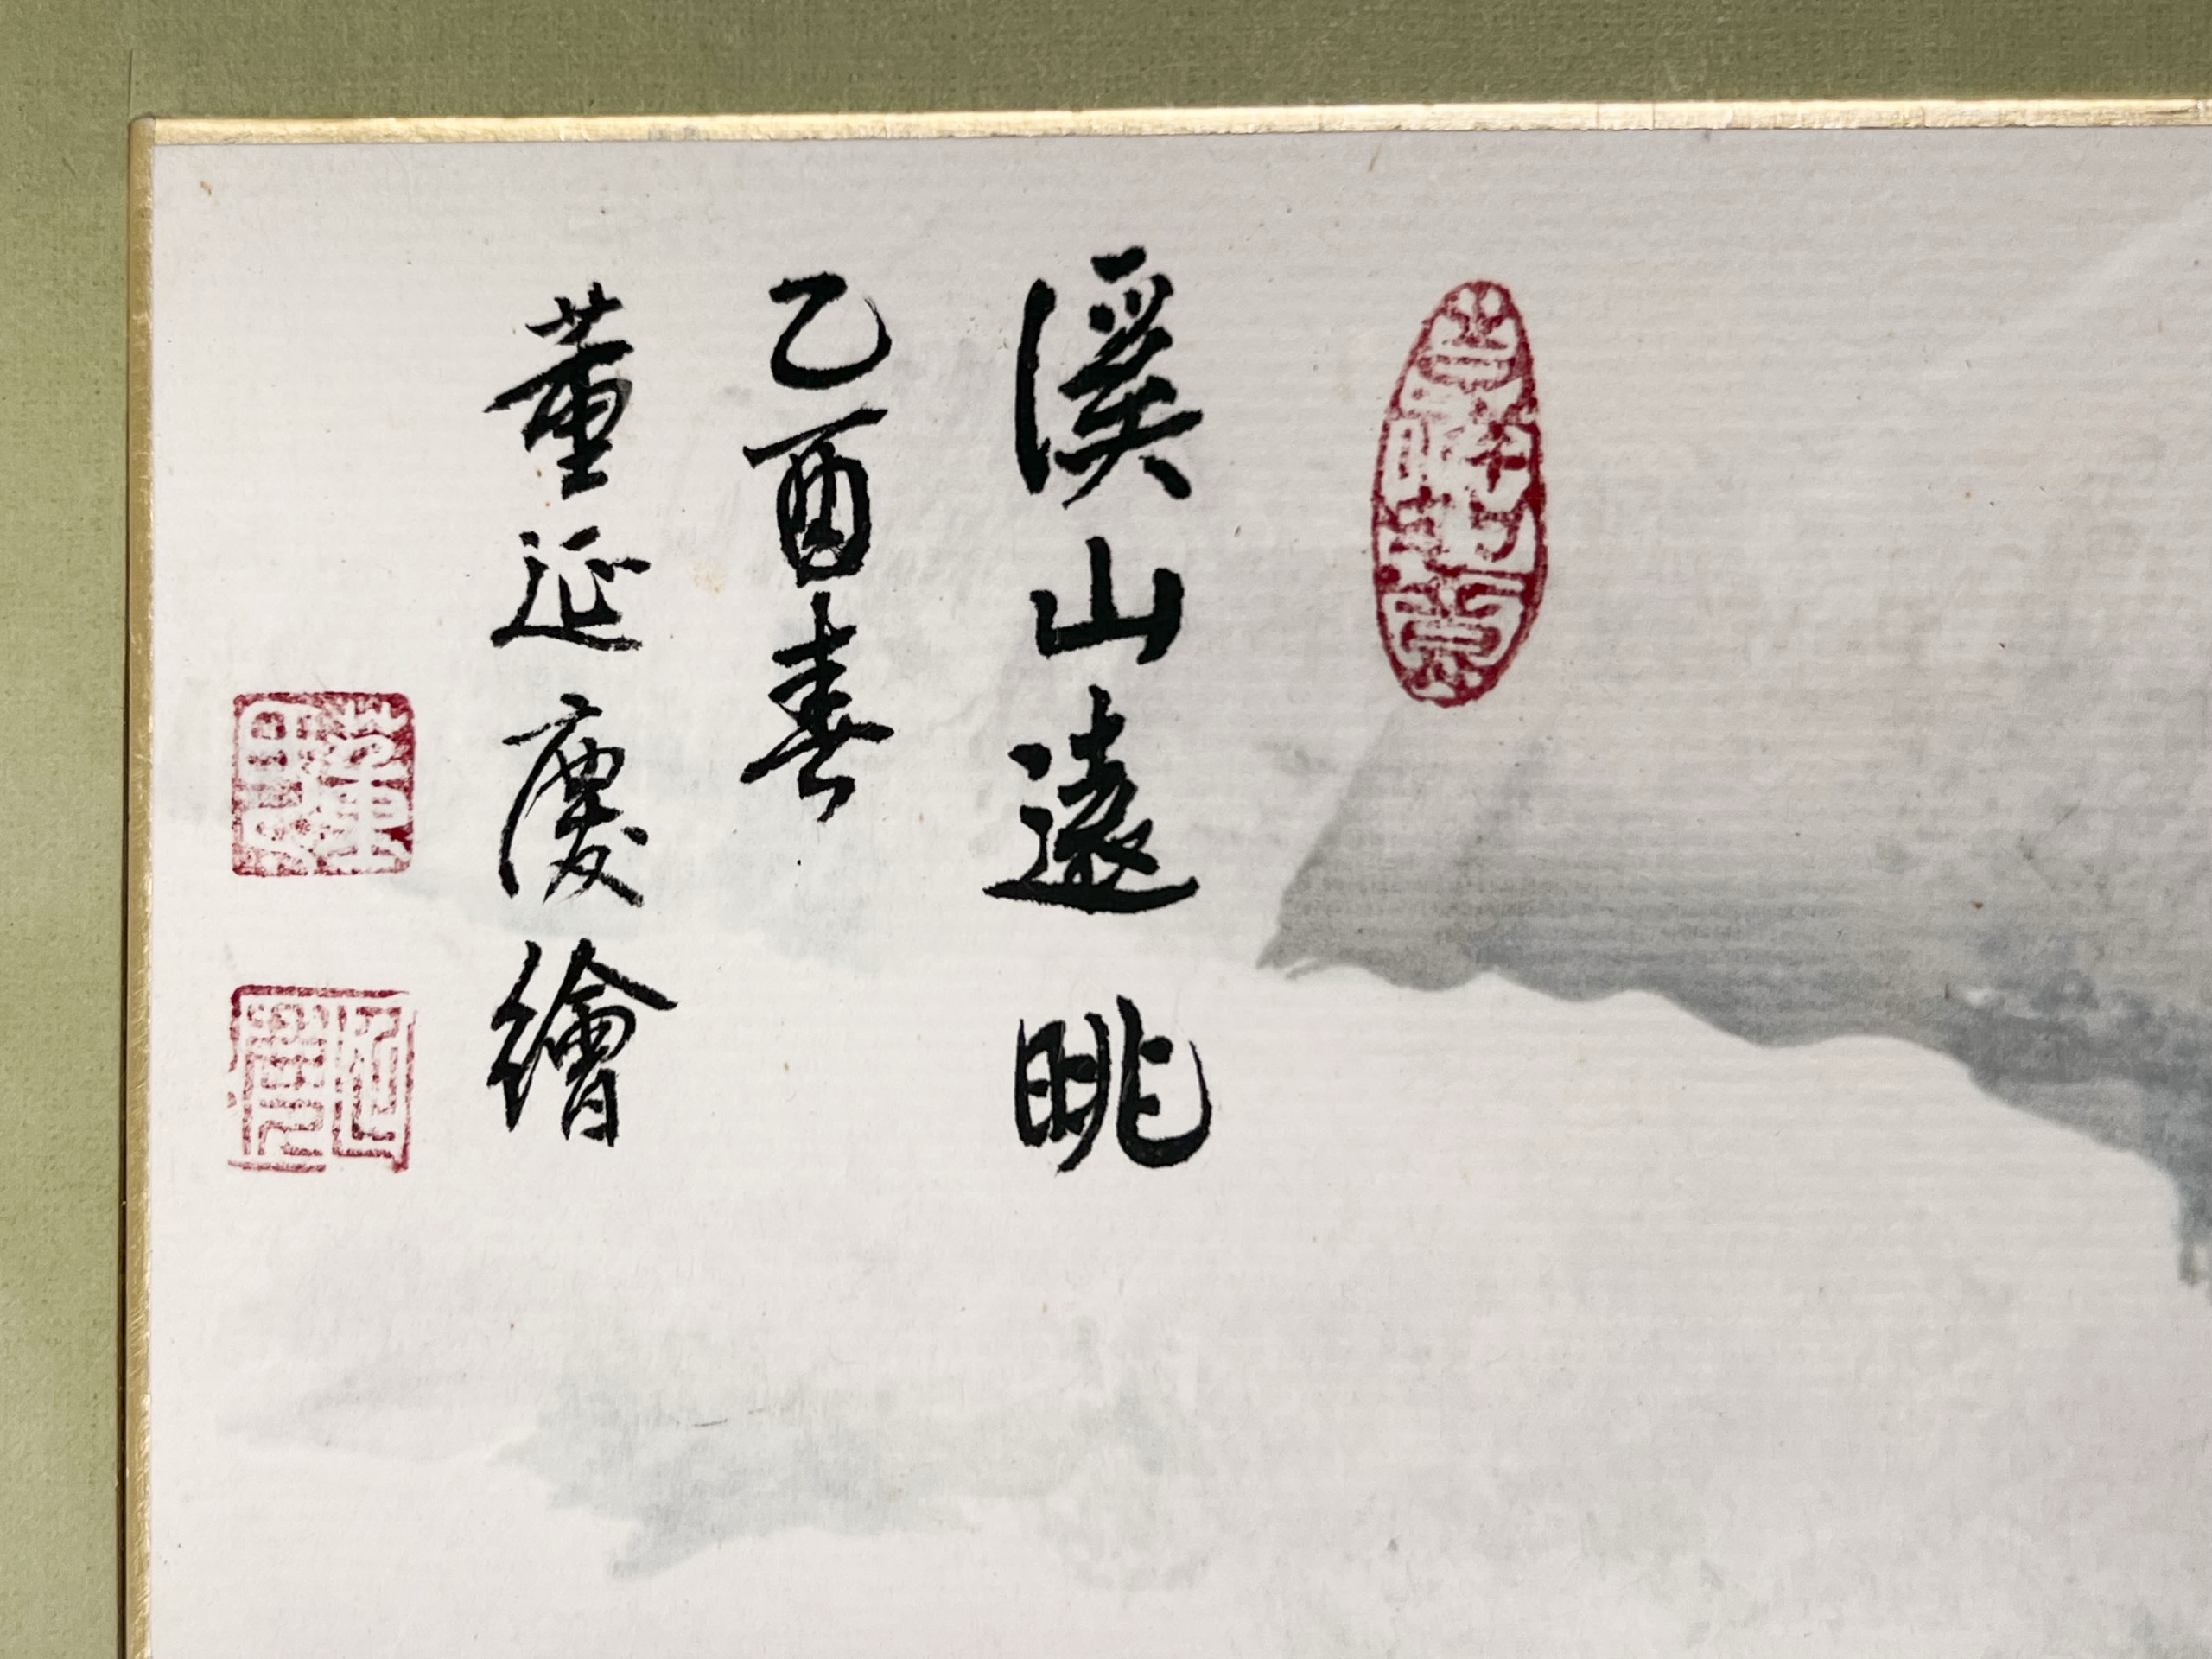 溪山遠眺
乙酉春
董延慶繪